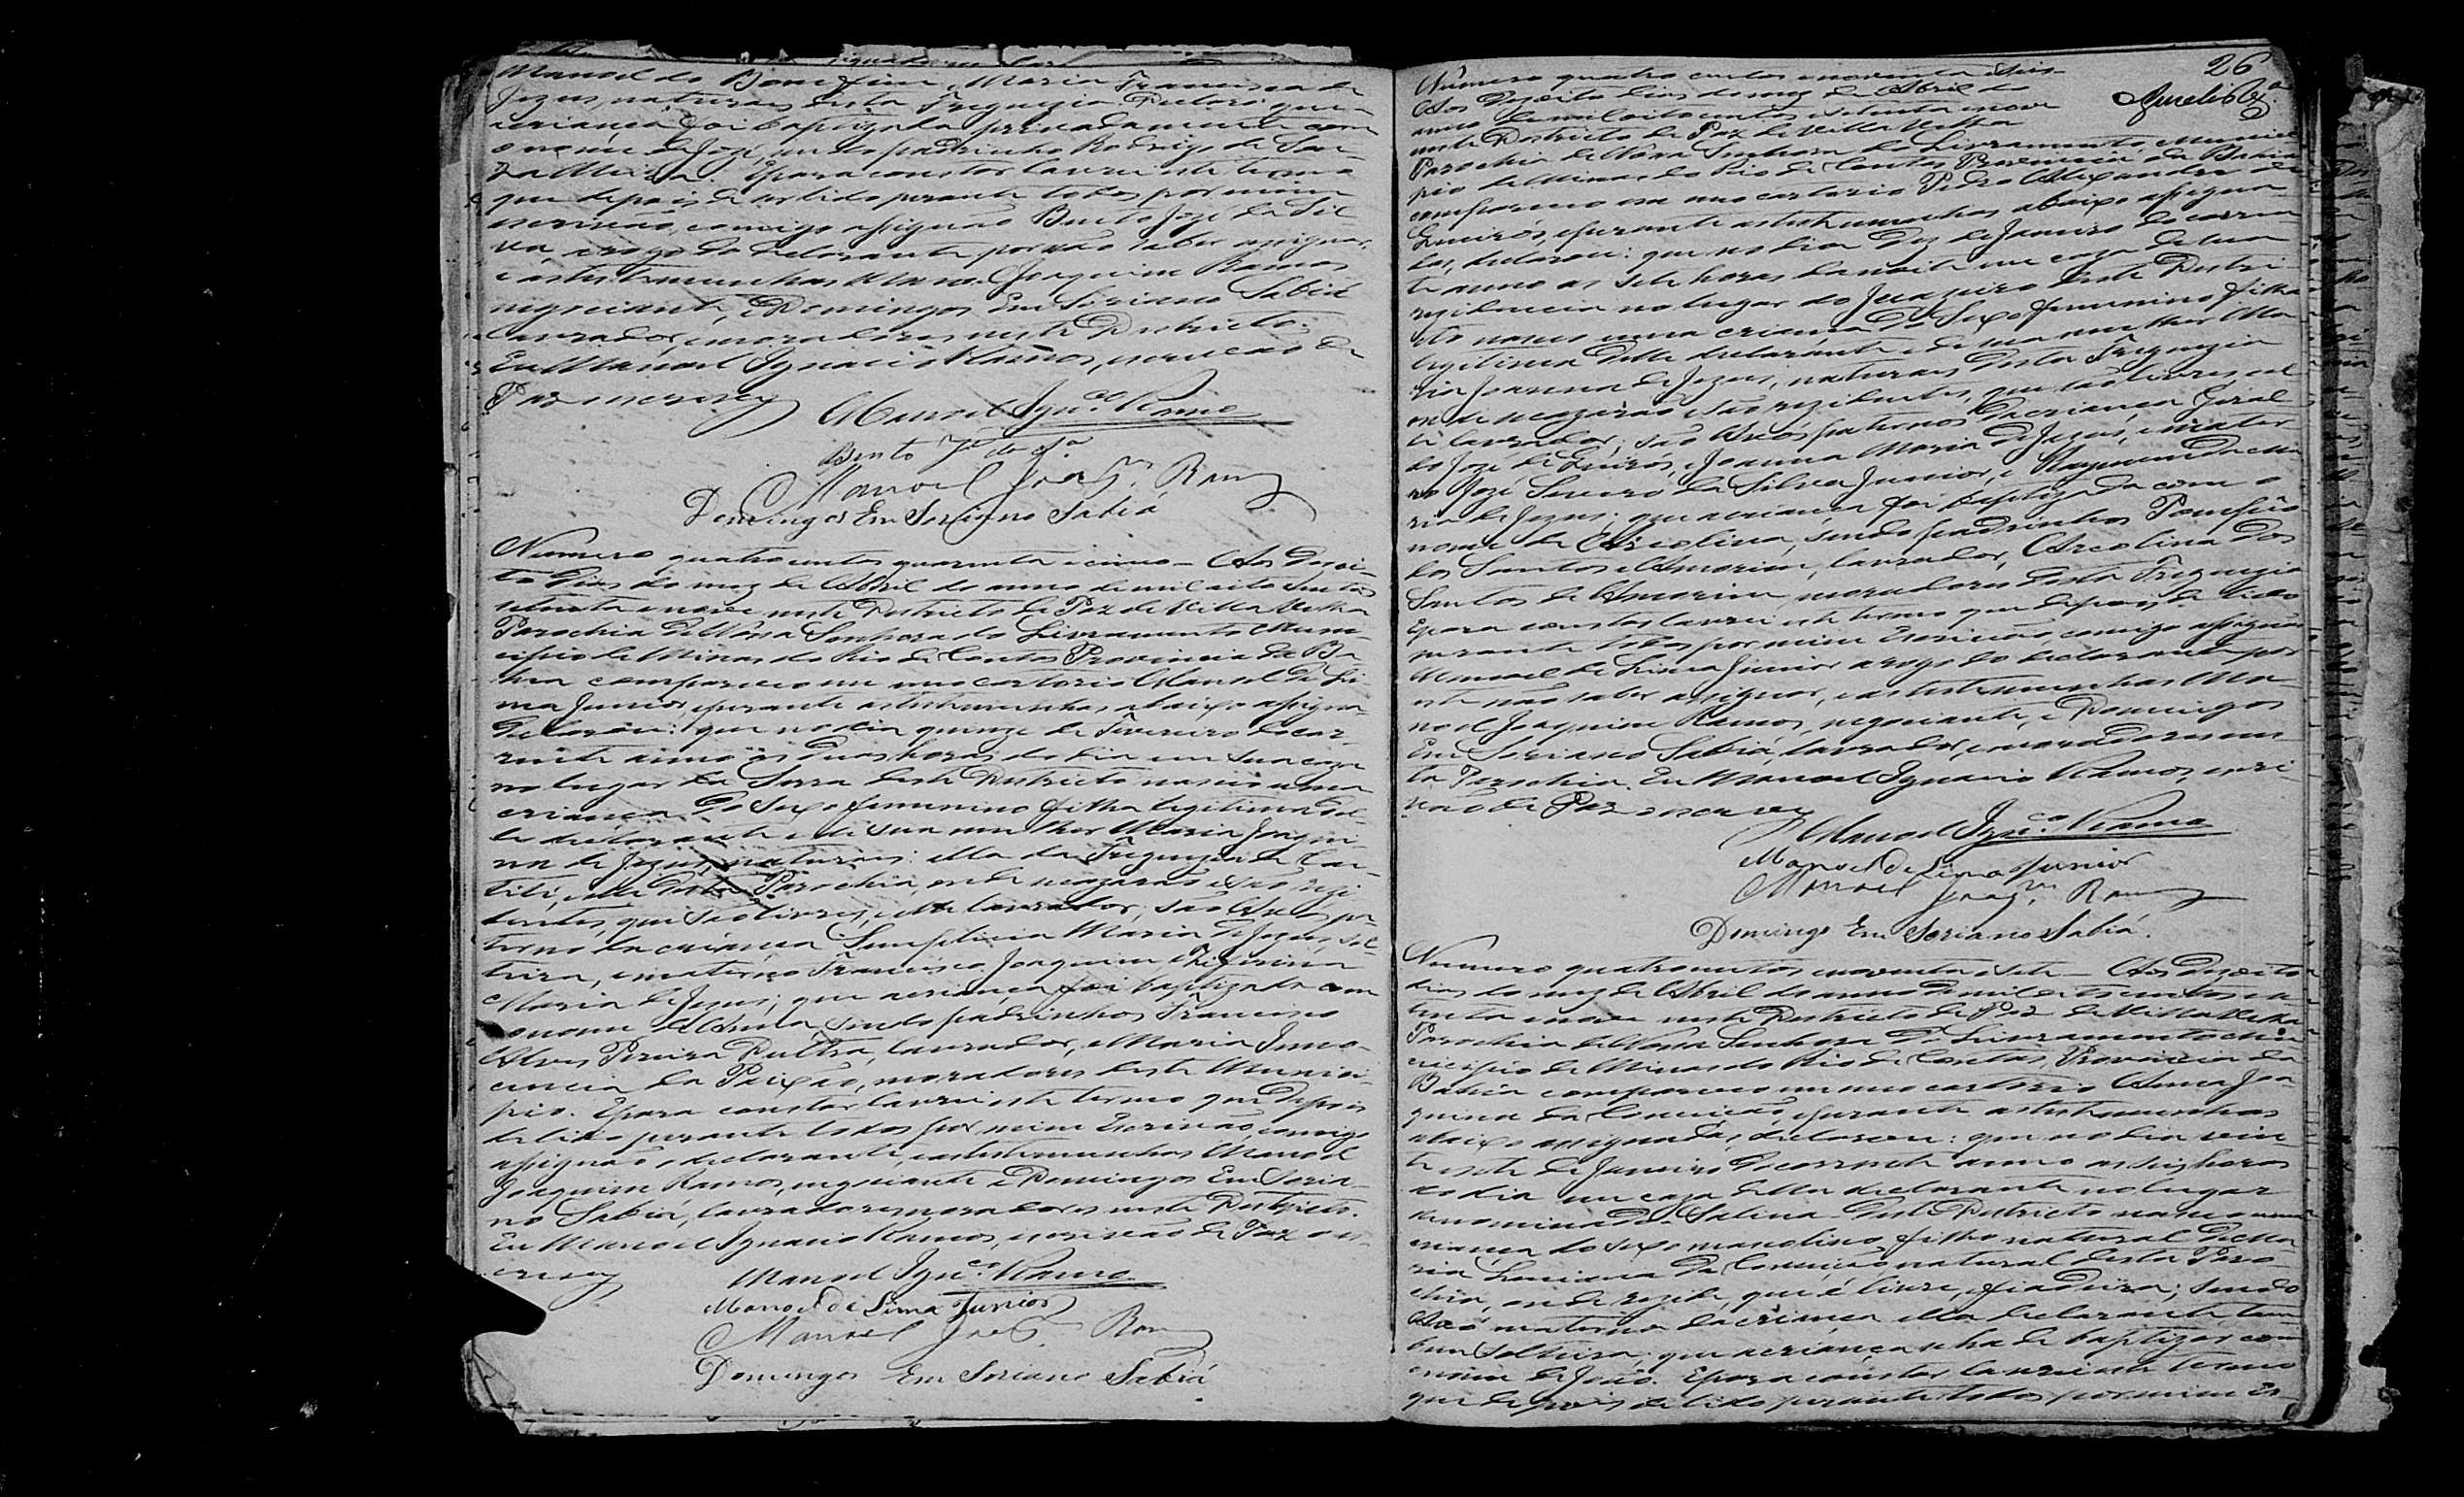 Manoel do Bomfim, Maria Francisca de
Jezus, naturaes desta Freguezia. Declaro que a
criança foi baptizada privadamente com
o nome de José, sendo padrinho Rodrigo de Sou-
za Meira. E para constar lavrei este termo
que depois de ser lido perante todos por mim
escrivão, comigo assignão Bento José da Sil-
va, a rogo do declarante, por não saber assignar,
e as testemunhas Manoel Joaquim Ramos
negociante, e Domingos Em Soriano Sabiá
lavrador, moradores neste Districto.
Eu Manoel Ignacio Ramos, escrivão de
Paz escrevy
Manoel Ignco. Ramos
Bento Je. da Sa.
Manoel Joaqm. Ramos
Domingos Em Soriano Sabiá
Numero quatrocentos quarenta e cinco — Aos desoi-
to dias do mez de Abril do anno de mil oito centos
setenta e nove neste Districto de Paz de Villa Velha
Parochia de Nossa Senhora do Livramento Muni-
cipio de Minas do Rio de Contas Provincia da Ba-
hia compareceu em meo cartorio Manoel de Li-
ma Junior, e perante as testemunhas abaixo assigna-
declarou: que no dia quinze de Fevereiro do cor-
rente anno as duas horas do dia em sua caza
no lugar da Serra deste Districto nasceu uma
criança do sexo femenino filha legitima del-
le declarante e de sua mulher Maria Joaqui-
na de Jezus, naturaes: ella da Freguezia de Cae-
tité, elle desta Parochia, onde se cazarão e são rezi-
dentes, que são livres, elle lavrador; são Avós pa-
terno da criança Simplicia Maria de Jezus, sol-
teira, e materno Francisco Joaquim e Zeferina
Maria de Jezus; que a criança foi baptizada com
o nome de Anna, sendo padrinhos Francisco
Alves Pereira Dultra, lavrador, e Maria Inno-
cencia da Paixão, moradores deste Munici-
pio. E para constar lavrei este termo que depois
de lido perante todos por mim Escrivão, comigo
assignão o declarante, e as testemunhas Manoel
Joaquim Ramos, negociante e Domingos Em Soria-
no Sabiá, lavrador, moradores neste Districto.
Eu Manoel Ignacio Ramos, escrivão de Paz o es-
crevy
Manoel Ignco. Ramos
Manoel de Lima Junior
Manoel Joaqm. Ramos
Domingos Em Soriano Sabiá
26
Numero quatro centos e noventa e seis —
Aos dezoito dias do mez de Abril do
anno de mil oito centos e setenta e nove
neste Districto de Paz de Villa Velha
Parochia de Nossa Senhora do Livramento, Munici-
pio de Minas do Rio de Contas, Provincia da Bahia
compareceo em meo cartorio Pedro Alexandre de
Queirós, e perante as testemunhas abaixo assigna-
das, declarou: que no dia dez de Janeiro do corren-
te anno as sete horas da noite em caza de sua
rezidencia no lugar do Juazeiro deste Distri-
cto nasceu uma criança do sexo femenino filha
legitima delle declarante e de sua mulher Ma-
ria Joanna de Jezus, naturaes desta Freguezia
onde se cazarão e são rezidentes, que são livres, el-
le lavrador; são Avós paternos da criança Geral-
do José de Queirós, e Joanna Maria de Jezus, e mater-
no José Severo da Silva Junior, e Raymunda Ma-
ria de Jezus; que a criança foi baptizada com o
nome de Arcolina, sendo padrinhos Pomfilio
dos Santos e Amorim, lavrador, Arcolina dos
Santos de Amorim, moradores desta Freguezia
E para constar lavrei este termo que depois de lido
perante todos por mim Escrivão, comigo assignão
Manoel de Lima Junior a rogo do declarante por
este não saber assignar, e as testemunhas Ma-
noel Joaquim Ramos, negociante, e Domingos
Em Soriano Sabiá, lavrador, moradores nes-
ta Parochia. Eu Manoel Ignacio Ramos, escri-
vão de Paz o escrevy
Manoel Ignco. Ramos
Manoel de Lima Junior
Manoel Joaqm. Ramos
Domingo Em Soriano Sabiá.
Numero quatrocentos e noventa e sete — Aos dezoito
dias do mez de Abril do anno de mil oitocentos se-
tenta e nove neste Districto de Paz de Villa Velha
Parochia de Nossa Senhora do Livramento Mu-
nicipio de Minas do Rio de Contas, Provincia da
Bahia compareceu em meo cartorio Anna Joa-
quina da Conceição, e perante as testemunhas
abaixo assignadas, declarou: que no dia vin-
te sete de Janeiro do corrente anno as seis horas
do dia em caza della declarante no lugar
denominado Salina deste Districto nasceo uma
criança do sexo masculino, filho natural de Ma-
ria Luciana da Conceição, natural desta Paro-
chia, onde rezide, que é livre, e fiadeira; sendo
Avó materna da criança ella declarante tam-
bem solteira; que a criança se ha de baptizar com
o nome de João. E para constar lavrei este termo
que depois de lido perante todos por mim Es-